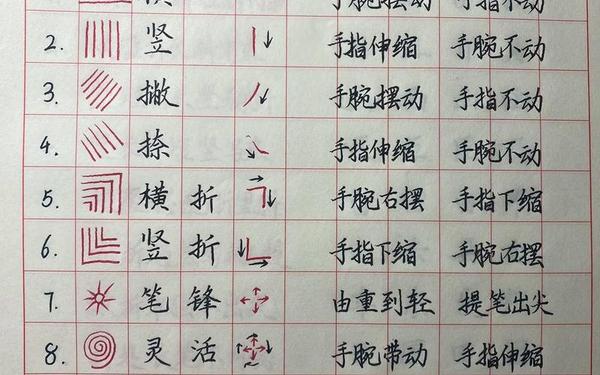 横 手腕摆动 手指不动
2. 竖 手指伸缩 手腕不动
3. 撇 手腕摆动 手指不动
4. 捺 手指伸缩 手腕不动
5. 横折 手腕右摆 手指下缩
6. 竖折 手指下缩 手腕右摆
7. 笔锋 由重到轻 提笔出尖
8. 灵活 手腕带动 手指伸缩